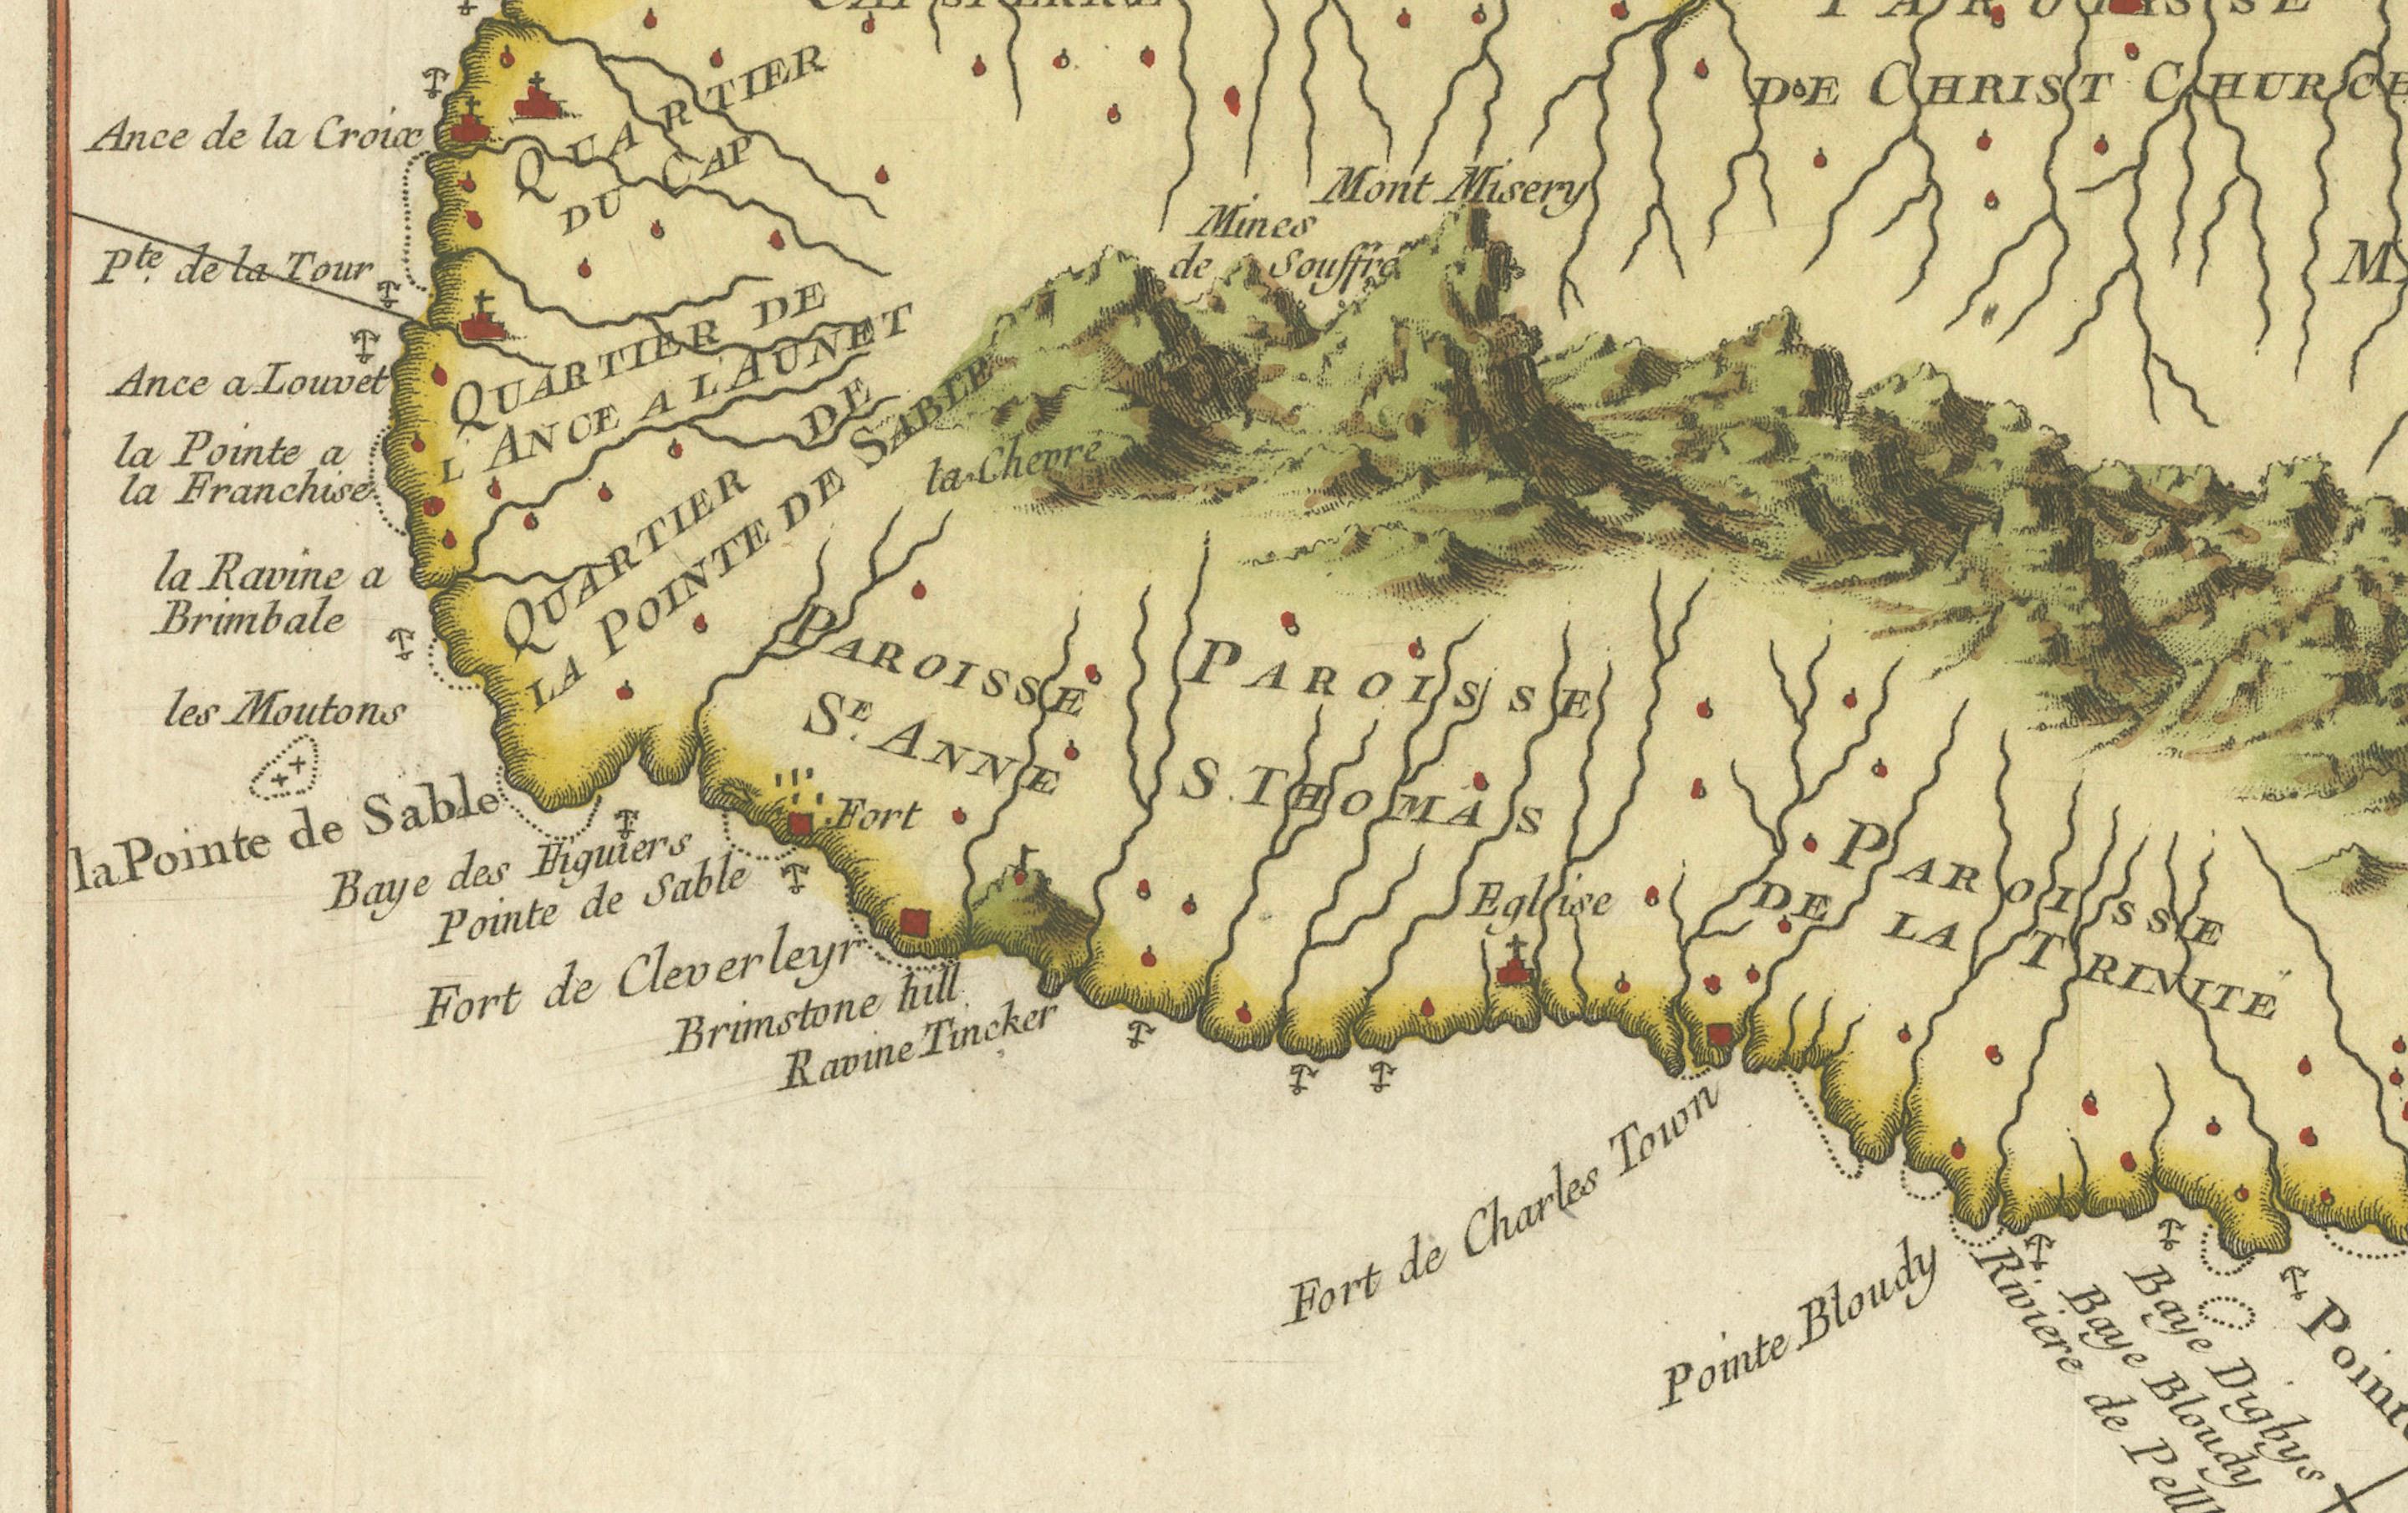 CAPSTERRE
PAROISSE
DE CHRIST CHURCH
Ance de la Croix
QUARTIER
DU CAP
Mont Misery
Mines
de Souffre
Pte. de la Tour
QUARTIER DE
L'ANCE A L'AUNET
Ance a Louvet
la Pointe a
la Franchise
QUARTIER DE
LA POINTE DE SABLE
la Chevre
la Ravine a
Brimbale
PAROISSE
SE. ANNE
PAROISSE
S. THOMAS
les Moutons
la Pointe de Sable
Fort
Baye des Figuiers
Pointe de Sable
Eglise
PAROISSE
DE LA TRINITE
Fort de Cleverleyr
Brimstone hill
Ravine Tincker
Fort de Charles Town
Pointe Bloudy
Riviere de Pell
Baye Bloudy
Baye Digbys
Pointe